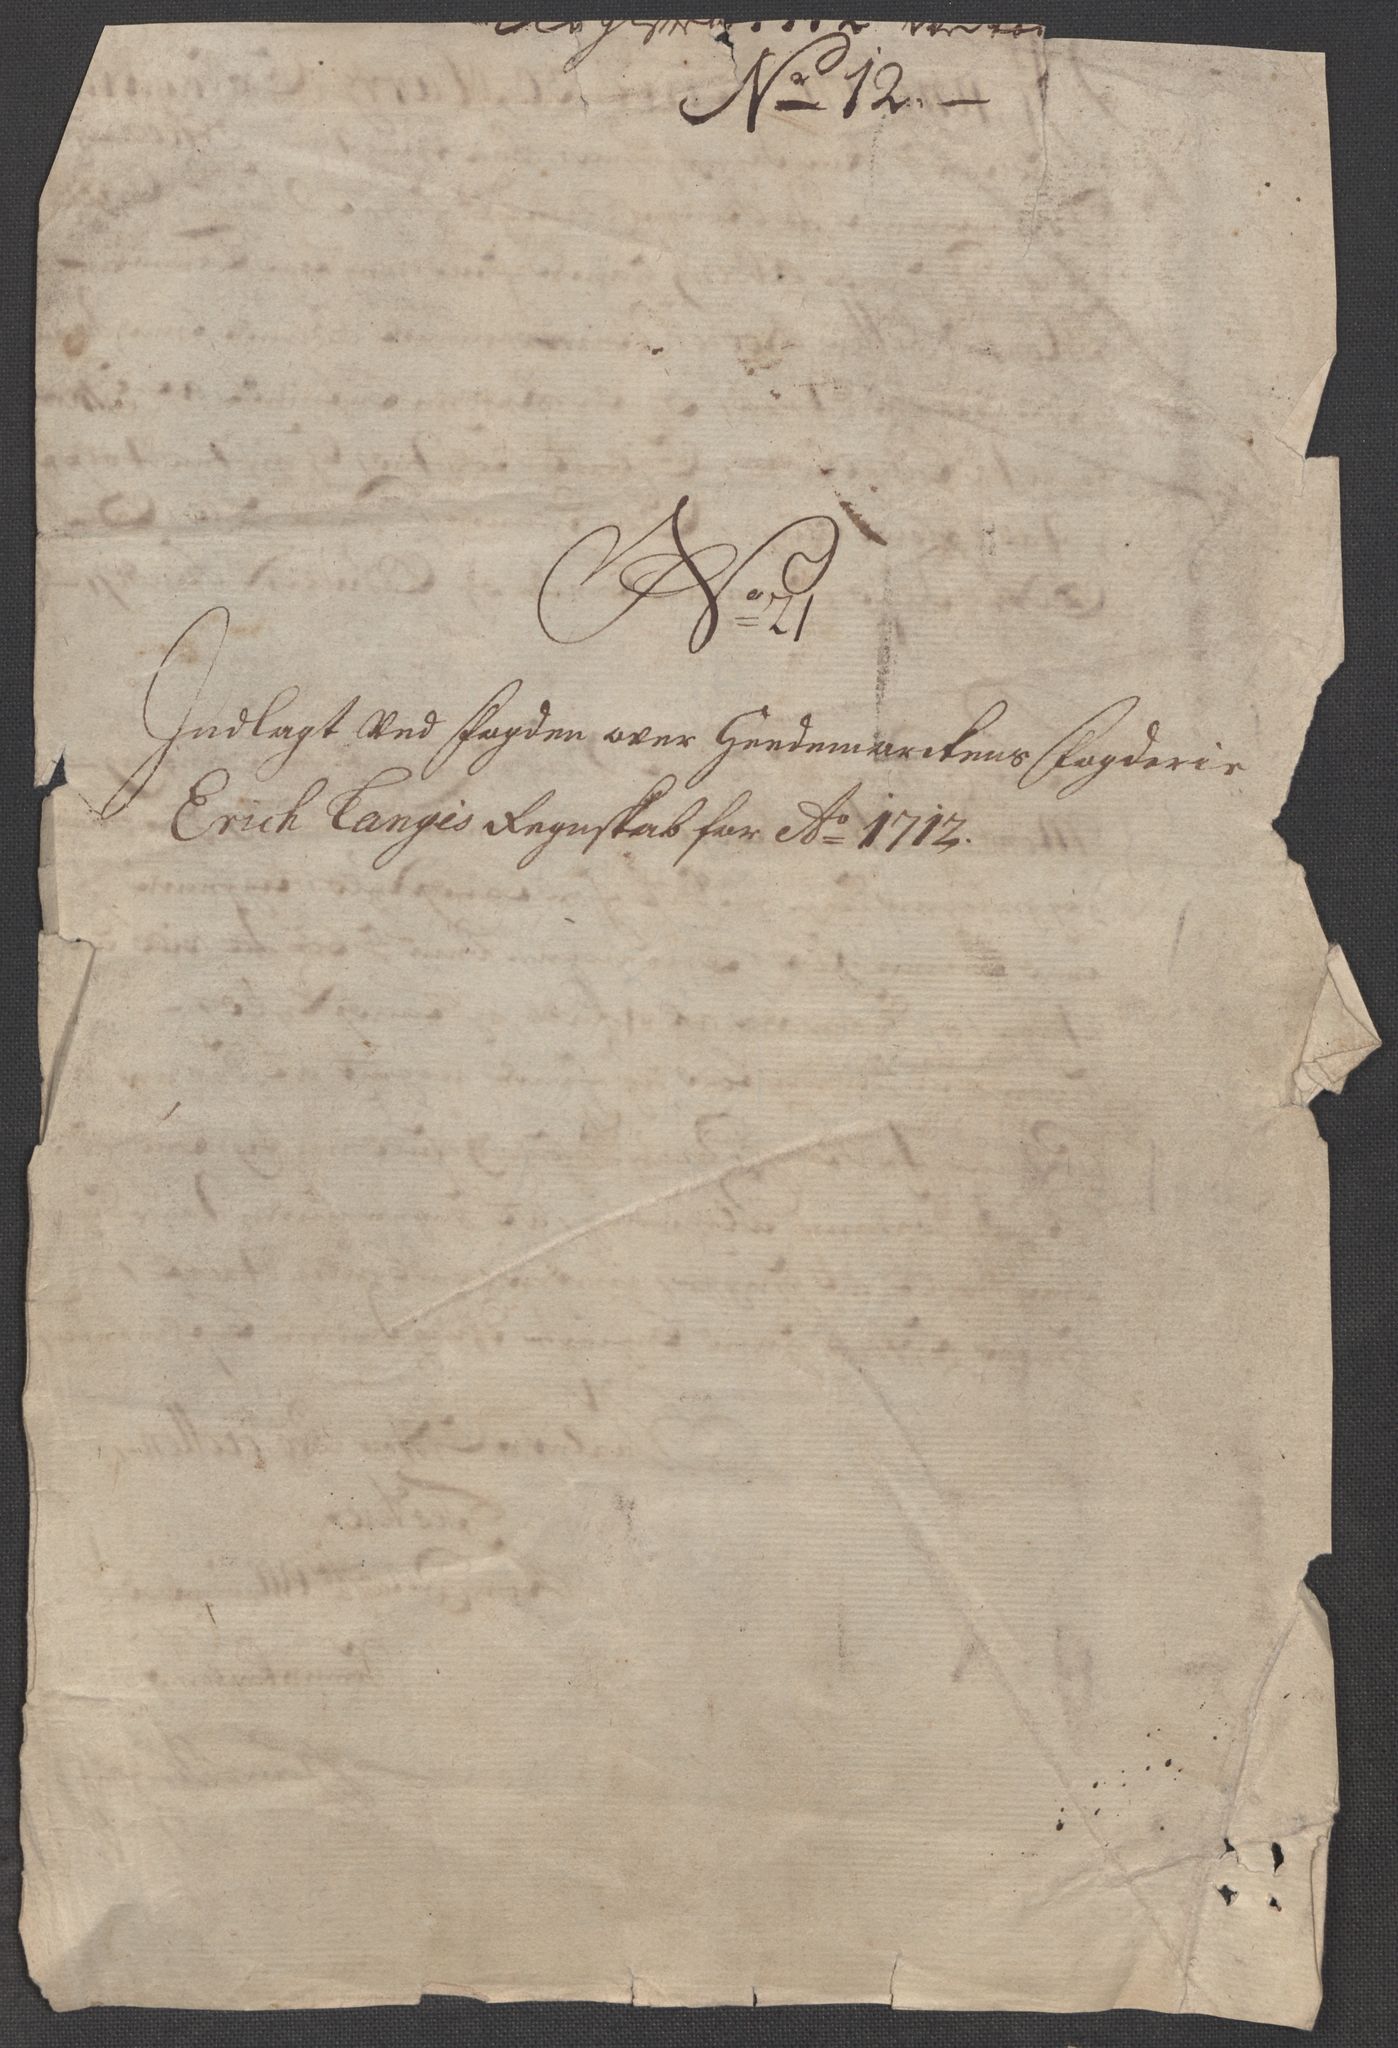 No 12.
No 21
Indlagt Ved Fogden over Heedemarckens Fogderie
Erich Tangis Regnskab for Ao 1712.